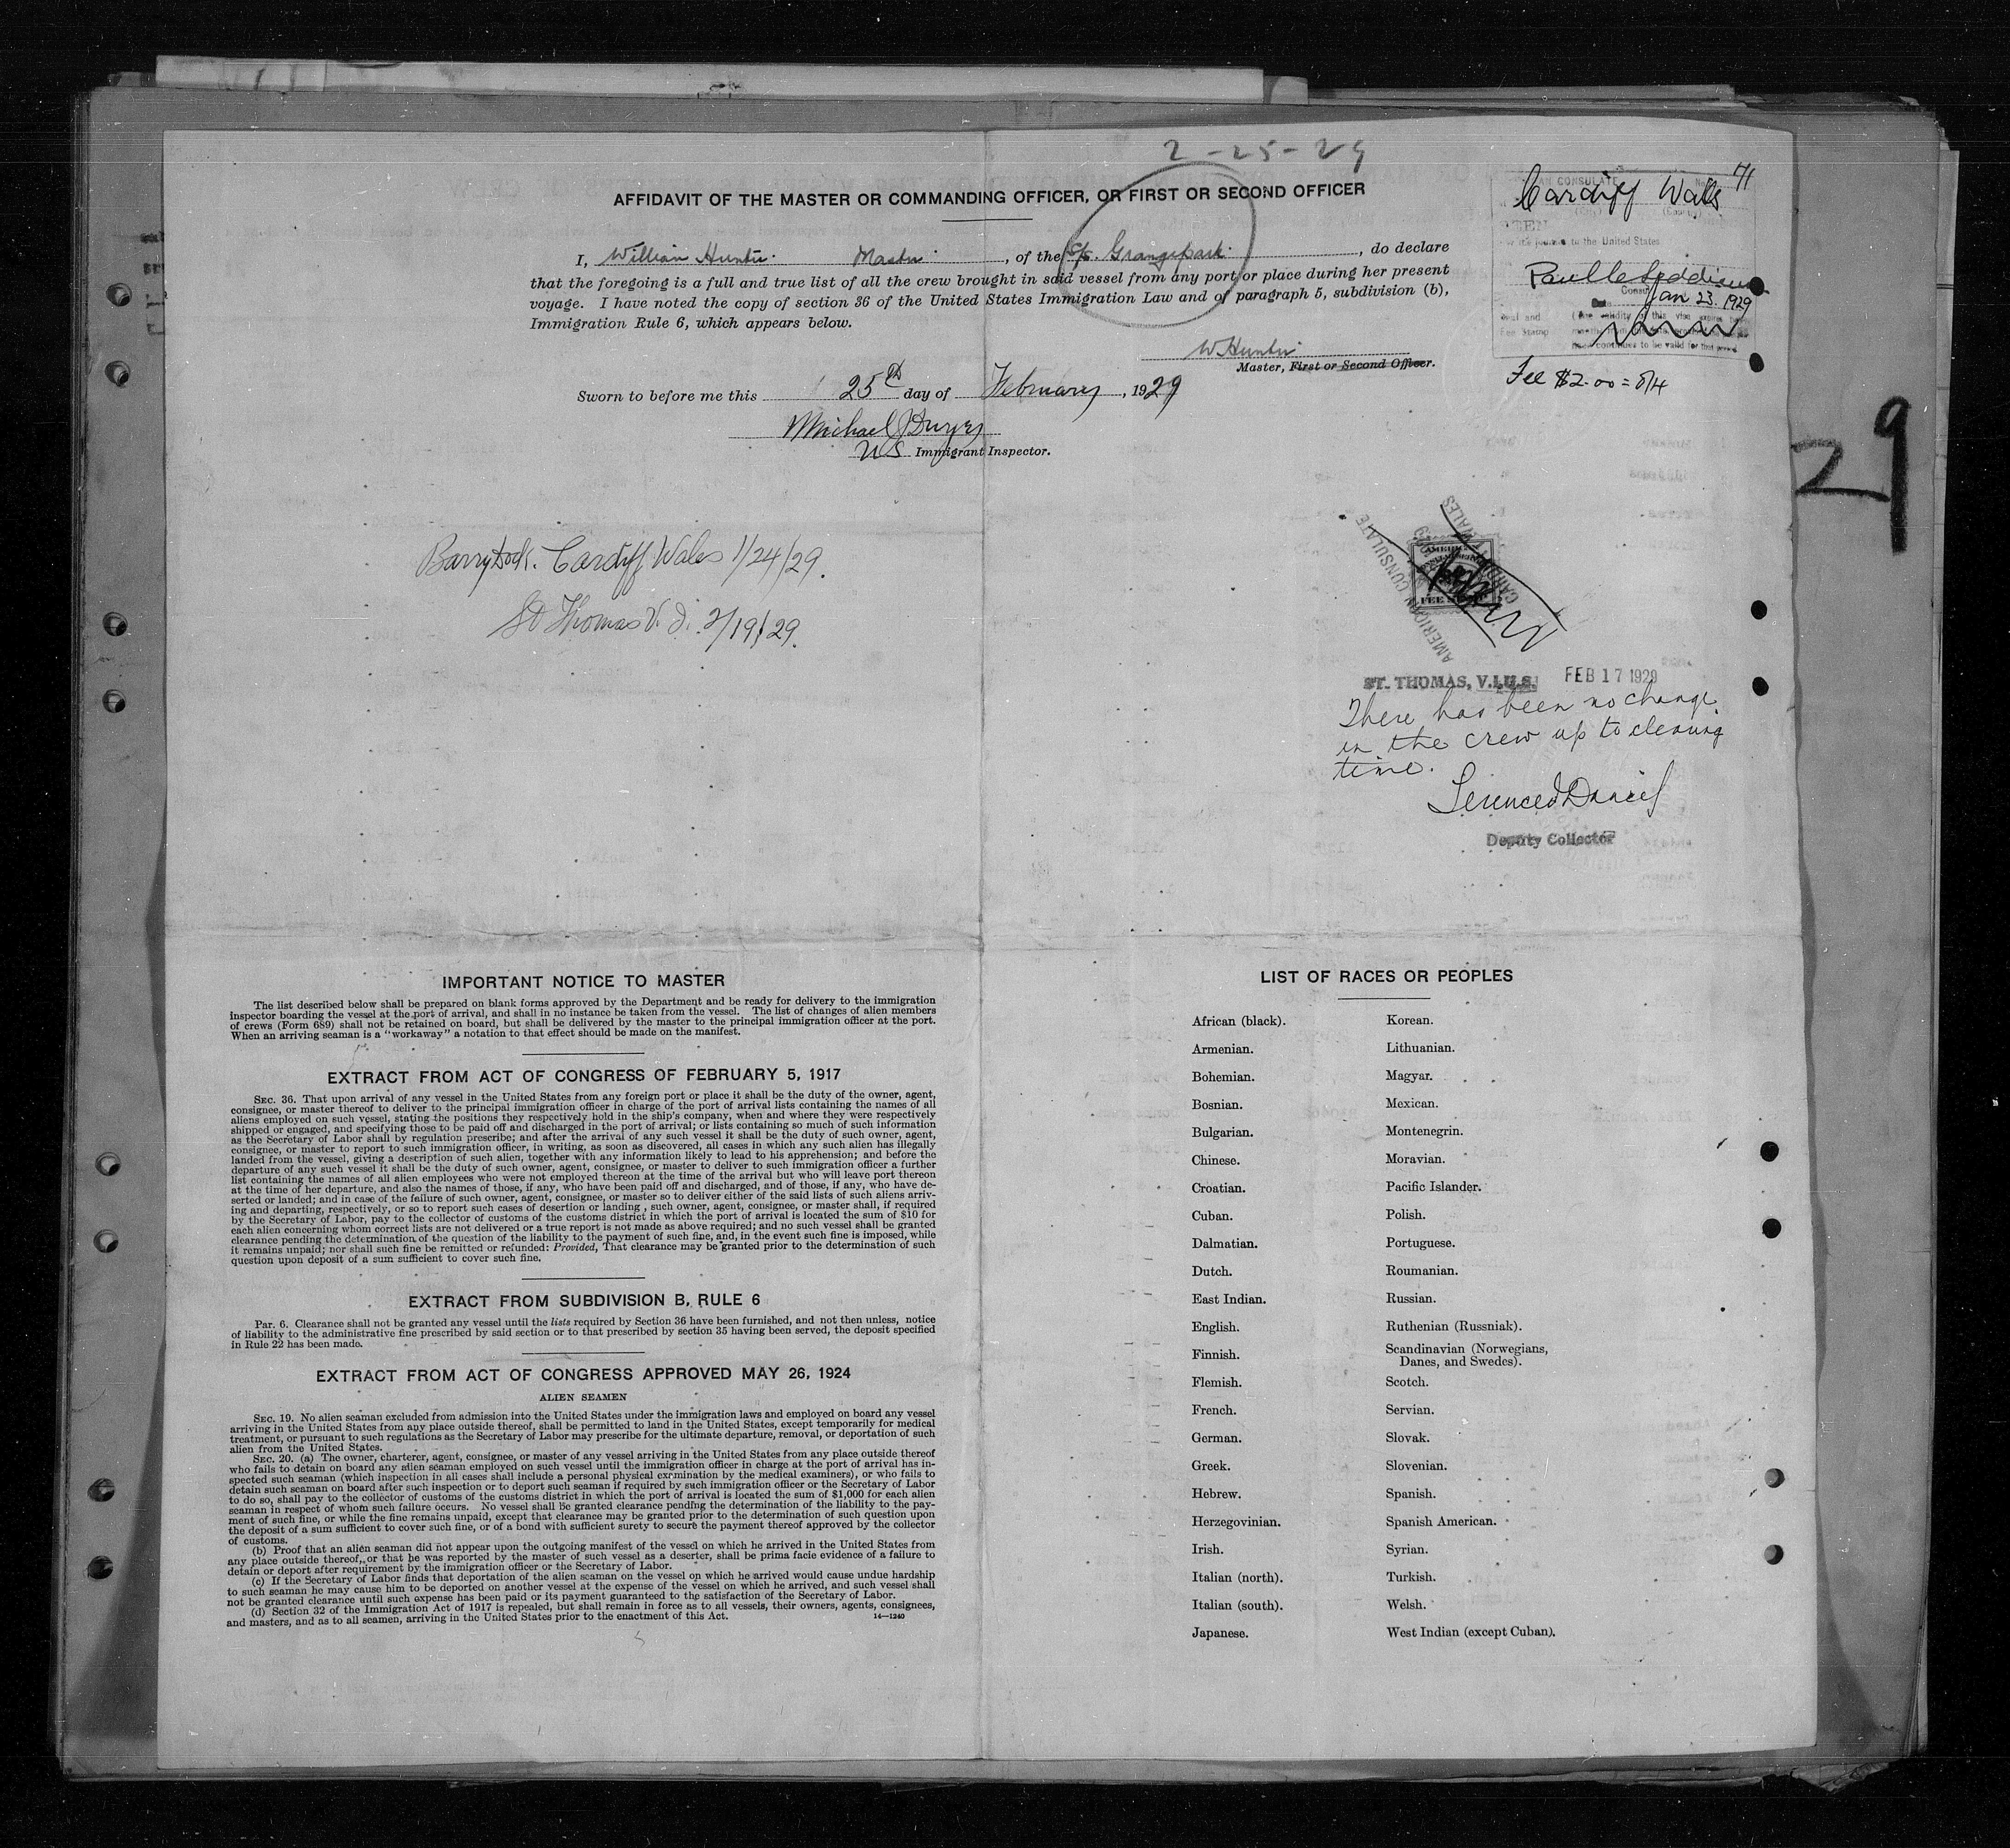 2-25-29
AFFIDAVIT OF THE MASTER OR COMMANDING OFFICER, OR FIRST OR SECOND OFFICER
I, William Hunter. Master, of the S/S. Grangepark, do declare
that the foregoing is a full and true list of all the crew brought in said vessel from any port or place during her present
voyage. I have noted the copy of section 36 of the United States Immigration Law and of paragraph 5, subdivision (b),
Immigration Rule 6, which appears below.
W. Hunter
Master, First or Second Officer.
Sworn to before me this 25th day of February, 1929
Michael J Dwyer
US Immigrant Inspector.
CONSULATE No. 71
Cardiff Wales
to the United States
Consul
Jan 23. 1929
Seal and
Fee Stamp
(The validity of this visa expires
continues to be valid for that period
Fee $2.00 = 8/4
29
Barry Dock. Cardiff, Wales 1/24/29.
St Thomas V. I. 2/19/29.
AMERICAN CONSULATE
CARDIFF WALES
FEE STAMP
ST. THOMAS, V.I.U.S. FEB 17 1929
There has been no change
in the crew up to clearing
time.
Daniel
Deputy Collector
IMPORTANT NOTICE TO MASTER
The list described below shall be prepared on blank forms approved by the Department and be ready for delivery to the immigration
inspector boarding the vessel at the port of arrival, and shall in no instance be taken from the vessel. The list of changes of alien members
of crews (Form 689) shall not be retained on board, but shall be delivered by the master to the principal immigration officer at the port.
When an arriving seaman is a "workaway" a notation to that effect should be made on the manifest.
EXTRACT FROM ACT OF CONGRESS OF FEBRUARY 5, 1917
SEC. 36. That upon arrival of any vessel in the United States from any foreign port or place it shall be the duty of the owner, agent,
consignee, or master thereof to deliver to the principal immigration officer in charge of the port of arrival lists containing the names of all
aliens employed on such vessel, stating the positions they respectively hold in the ship's company, when and where they were respectively
shipped or engaged, and specifying those to be paid off and discharged in the port of arrival; or lists containing so much of such information
as the Secretary of Labor shall by regulation prescribe; and after the arrival of any such vessel it shall be the duty of such owner, agent,
consignee, or master to report to such immigration officer, in writing, as soon as discovered, all cases in which any such alien has illegally
landed from the vessel, giving a description of such alien, together with any information likely to lead to his apprehension; and before the
departure of any such vessel it shall be the duty of such owner, agent, consignee, or master to deliver to such immigration officer a further
list containing the names of all alien employees who were not employed thereon at the time of the arrival but who will leave port thereon
at the time of her departure, and also the names of those, if any, who have been paid off and discharged, and of those, if any, who have de-
serted or landed; and in case of the failure of such owner, agent, consignee, or master so to deliver either of the said lists of such aliens arriv-
ing and departing, respectively, or so to report such cases of desertion or landing, such owner, agent, consignee, or master shall, if required
by the Secretary of Labor, pay to the collector of customs of the customs district in which the port of arrival is located the sum of $10 for
each alien concerning whom correct lists are not delivered or a true report is not made as above required; and no such vessel shall be granted
clearance pending the determination of the question of the liability to the payment of such fine, and, in the event such fine is imposed, while
it remains unpaid; nor shall such fine be remitted or refunded: Provided, That clearance may be granted prior to the determination of such
question upon deposit of a sum sufficient to cover such fine.
EXTRACT FROM SUBDIVISION B, RULE 6
Par. 6. Clearance shall not be granted any vessel until the lists required by Section 36 have been furnished, and not then unless, notice
of liability to the administrative fine prescribed by said section or to that prescribed by section 35 having been served, the deposit specified
in Rule 22 has been made.
EXTRACT FROM ACT OF CONGRESS APPROVED MAY 26, 1924
ALIEN SEAMEN
SEC. 19. No alien seaman excluded from admission into the United States under the immigration laws and employed on board any vessel
arriving in the United States from any place outside thereof, shall be permitted to land in the United States, except temporarily for medical
treatment, or pursuant to such regulations as the Secretary of Labor may prescribe for the ultimate departure, removal, or deportation of such
alien from the United States.
SEC. 20. (a) The owner, charterer, agent, consignee, or master of any vessel arriving in the United States from any place outside thereof
who fails to detain on board any alien seaman employed on such vessel until the immigration officer in charge at the port of arrival has in-
spected such seaman (which inspection in all cases shall include a personal physical exrmination by the medical examiners), or who fails to
detain such seaman on board after such inspection or to deport such seaman if required by such immigration officer or the Secretary of Labor
to do so, shall pay to the collector of customs of the customs district in which the port of arrival is located the sum of $1,000 for each alien
seaman in respect of whom such failure occurs. No vessel shall be granted clearance pending the determination of the liability to the pay-
ment of such fine, or while the fine remains unpaid, except that clearance may be granted prior to the determination of such question upon
the deposit of a sum sufficient to cover such fine, or of a bond with sufficient surety to secure the payment thereof approved by the collector
of customs.
(b) Proof that an alien seaman did not appear upon the outgoing manifest of the vessel on which he arrived in the United States from
any place outside thereof, or that he was reported by the master of such vessel as a deserter, shall be prima facie evidence of a failure to
detain or deport after requirement by the immigration officer or the Secretary of Labor.
(c) If the Secretary of Labor finds that deportation of the alien seaman on the vessel on which he arrived would cause undue hardship
to such seaman he may cause him to be deported on another vessel at the expense of the vessel on which he arrived, and such vessel shall
not be granted clearance until such expense has been paid or its payment guaranteed to the satisfaction of the Secretary of Labor.
(d) Section 32 of the Immigration Act of 1917 is repealed, but shall remain in force as to all vessels, their owners, agents, consignees,
and masters, and as to all seamen, arriving in the United States prior to the enactment of this Act. 14—1240
LIST OF RACES OR PEOPLES
African (black).
Armenian.
Bohemian.
Bosnian.
Bulgarian.
Chinese.
Croatian.
Cuban.
Dalmatian.
Dutch.
East Indian.
English.
Finnish.
Flemish.
French.
German.
Greek.
Hebrew.
Herzegovinian.
Irish.
Italian (north).
Italian (south).
Japanese.
Korean.
Lithuanian.
Magyar.
Mexican.
Montenegrin.
Moravian.
Pacific Islander.
Polish.
Portuguese.
Roumanian.
Russian.
Ruthenian (Russniak).
Scandinavian (Norwegians,
Danes, and Swedes).
Scotch.
Servian.
Slovak.
Slovenian.
Spanish.
Spanish American.
Syrian.
Turkish.
Welsh.
West Indian (except Cuban).